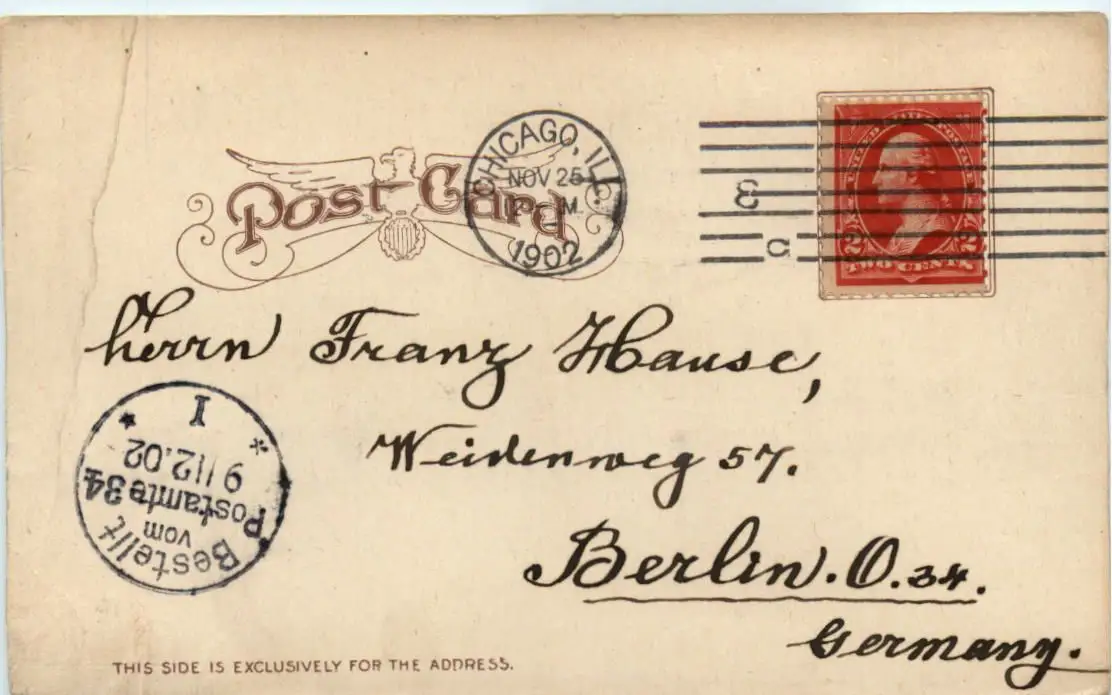 Post Card
CHICAGO, ILL.
NOV 25
M
1902
UNITED STATES POSTAGE
2 2
TWO CENTS
Herrn Franz Hause,
Weidenweg 57.
Berlin. O. 34.
Germany.
Bestellt
vom
Postamte 34
9/12.02
I
THIS SIDE IS EXCLUSIVELY FOR THE ADDRESS.